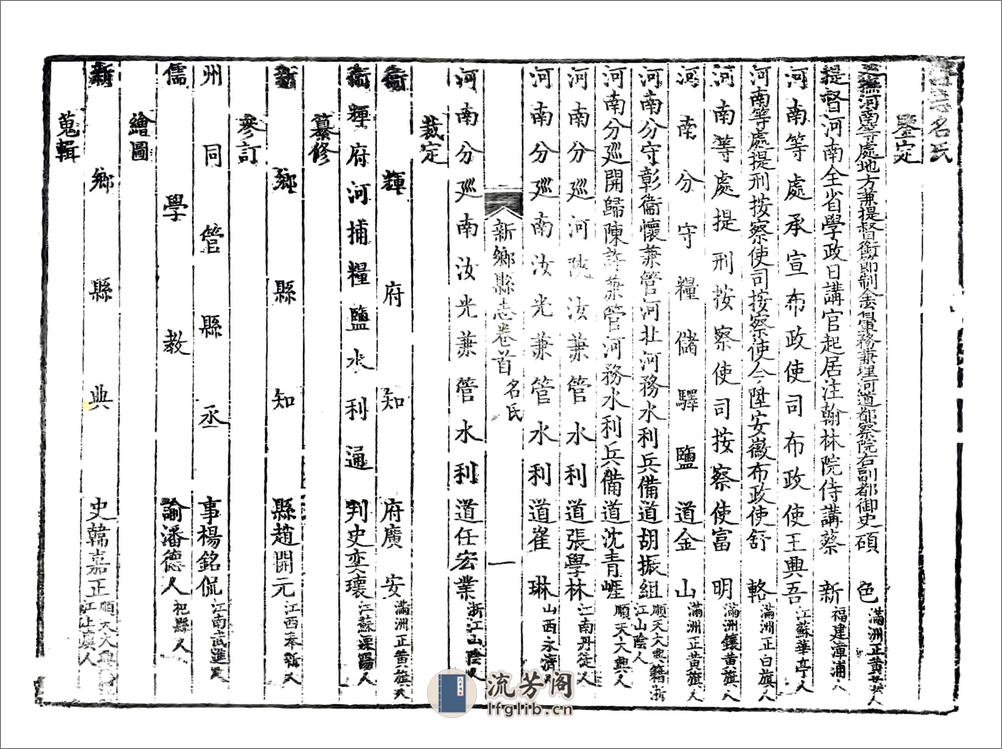 名氏
鑒定
巡撫河南等處地方兼提督銜節制全省軍務兼理河道都察院右副都御史碩色滿洲正黃旗人
提督河南全省學政日講官起居注翰林院侍講蔡新福建漳浦人
河南等處承宣布政使司布政使王興吾江蘇華亭人
河南等處提刑按察使司按察使今陞安徽布政使舒輅滿洲正白旗人
河南等處提刑按察使司按察使富明滿洲鑲黃旗人
河南分守糧儲驛鹽道金山滿洲正黃旗人
河南分守彰衞懷兼管河北河務水利兵備道胡振組順天大興籍浙江山陰人
河南分巡開歸陳許兼管河務水利兵備道沈青崕順天大興人
河南分巡河陝汝兼管水利道張學林江南丹徒人
河南分巡南汝光兼管水利道崔琳山西永濟人
新鄉縣志卷首
名氏
一
河南分巡南汝光兼管水利道任宏業浙江山陰人
裁定
衞輝府知府廣安滿洲正黃旗人
衞輝府河捕糧鹽水利通判史奕瓌江蘇溧陽人
纂修
新鄉縣知縣趙開元江西奉新人
參訂
州同管縣丞事楊銘侃江南武進人
儒學教諭潘德人祀縣人
繪圖
新鄉縣典史韓嘉正順天大興人
蒐輯
流芳阁
lfglib.cn